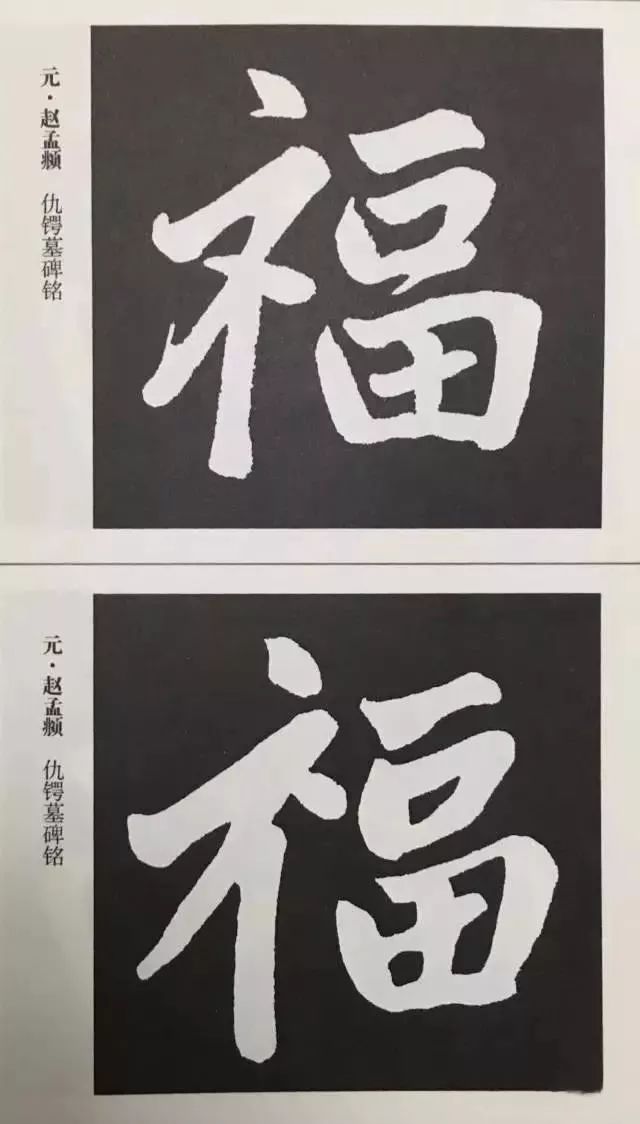 元·赵孟頫 仇锷墓碑铭
福
元·赵孟頫 仇锷墓碑铭
福